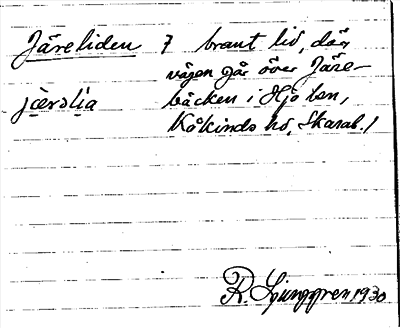 Järeliden } brant lid, där
vägen går över Järe-
jærəlia bäcken i Hjo lsn,
Kåkinds hd, Skarab. /
R. Ljunggren 1930